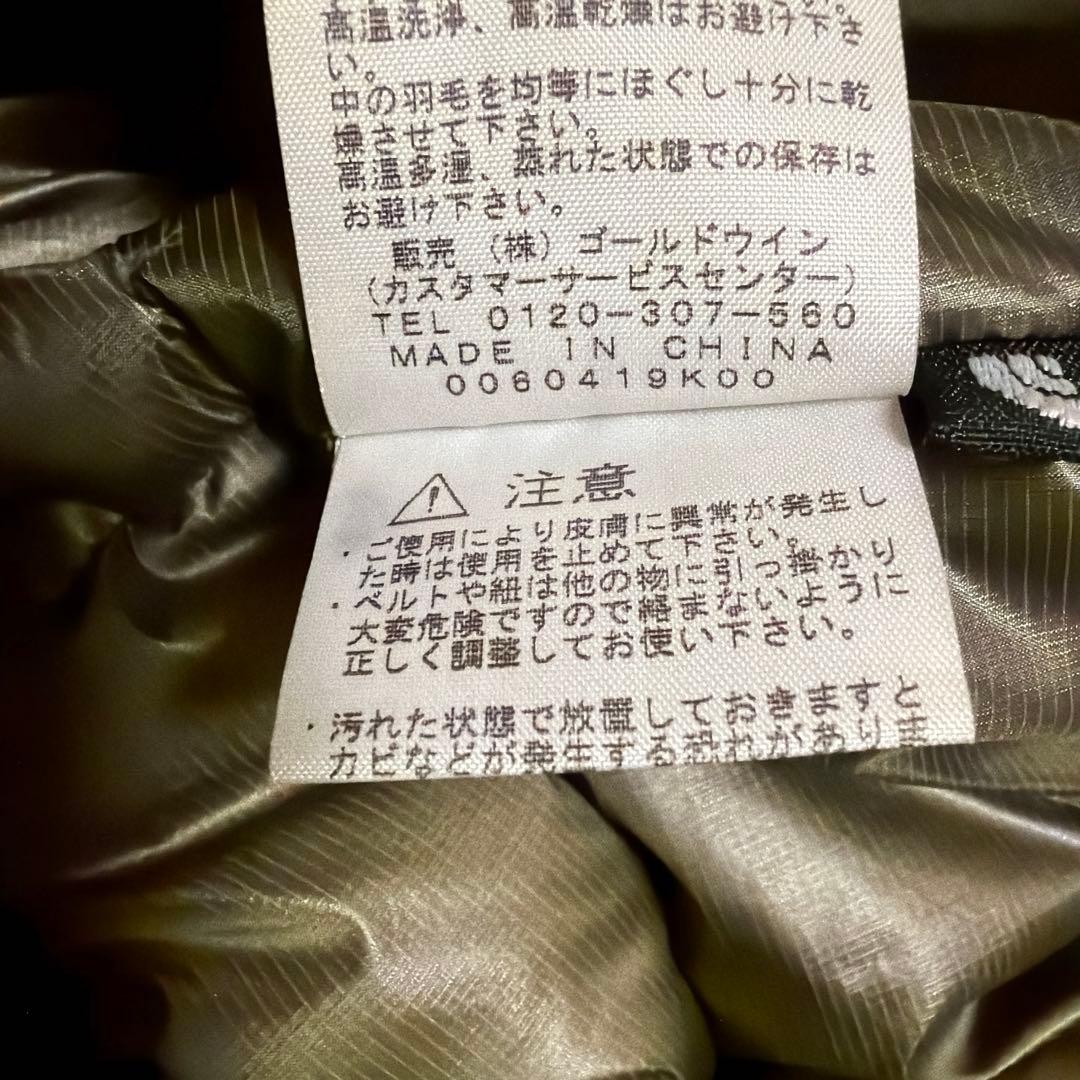 高温洗浄、高温乾燥はお避け下さ
い。
中の羽毛を均等にほぐし十分に乾
燥させて下さい。
高温多湿、蒸れた状態での保存は
お避け下さい。
販売 (株) ゴールドウイン
(カスタマーサービスセンター)
TEL 0120-307-560
MADE IN CHINA
0060419K00
注意
・ご使用により皮膚に異常が発生し
た時は使用を止めて下さい。
・ベルトや紐は他の物に引っ掛かり
大変危険ですので絡まないように
正しく調整してお使い下さい。
・汚れた状態で放置しておきますと
カビなどが発生する恐れがありま